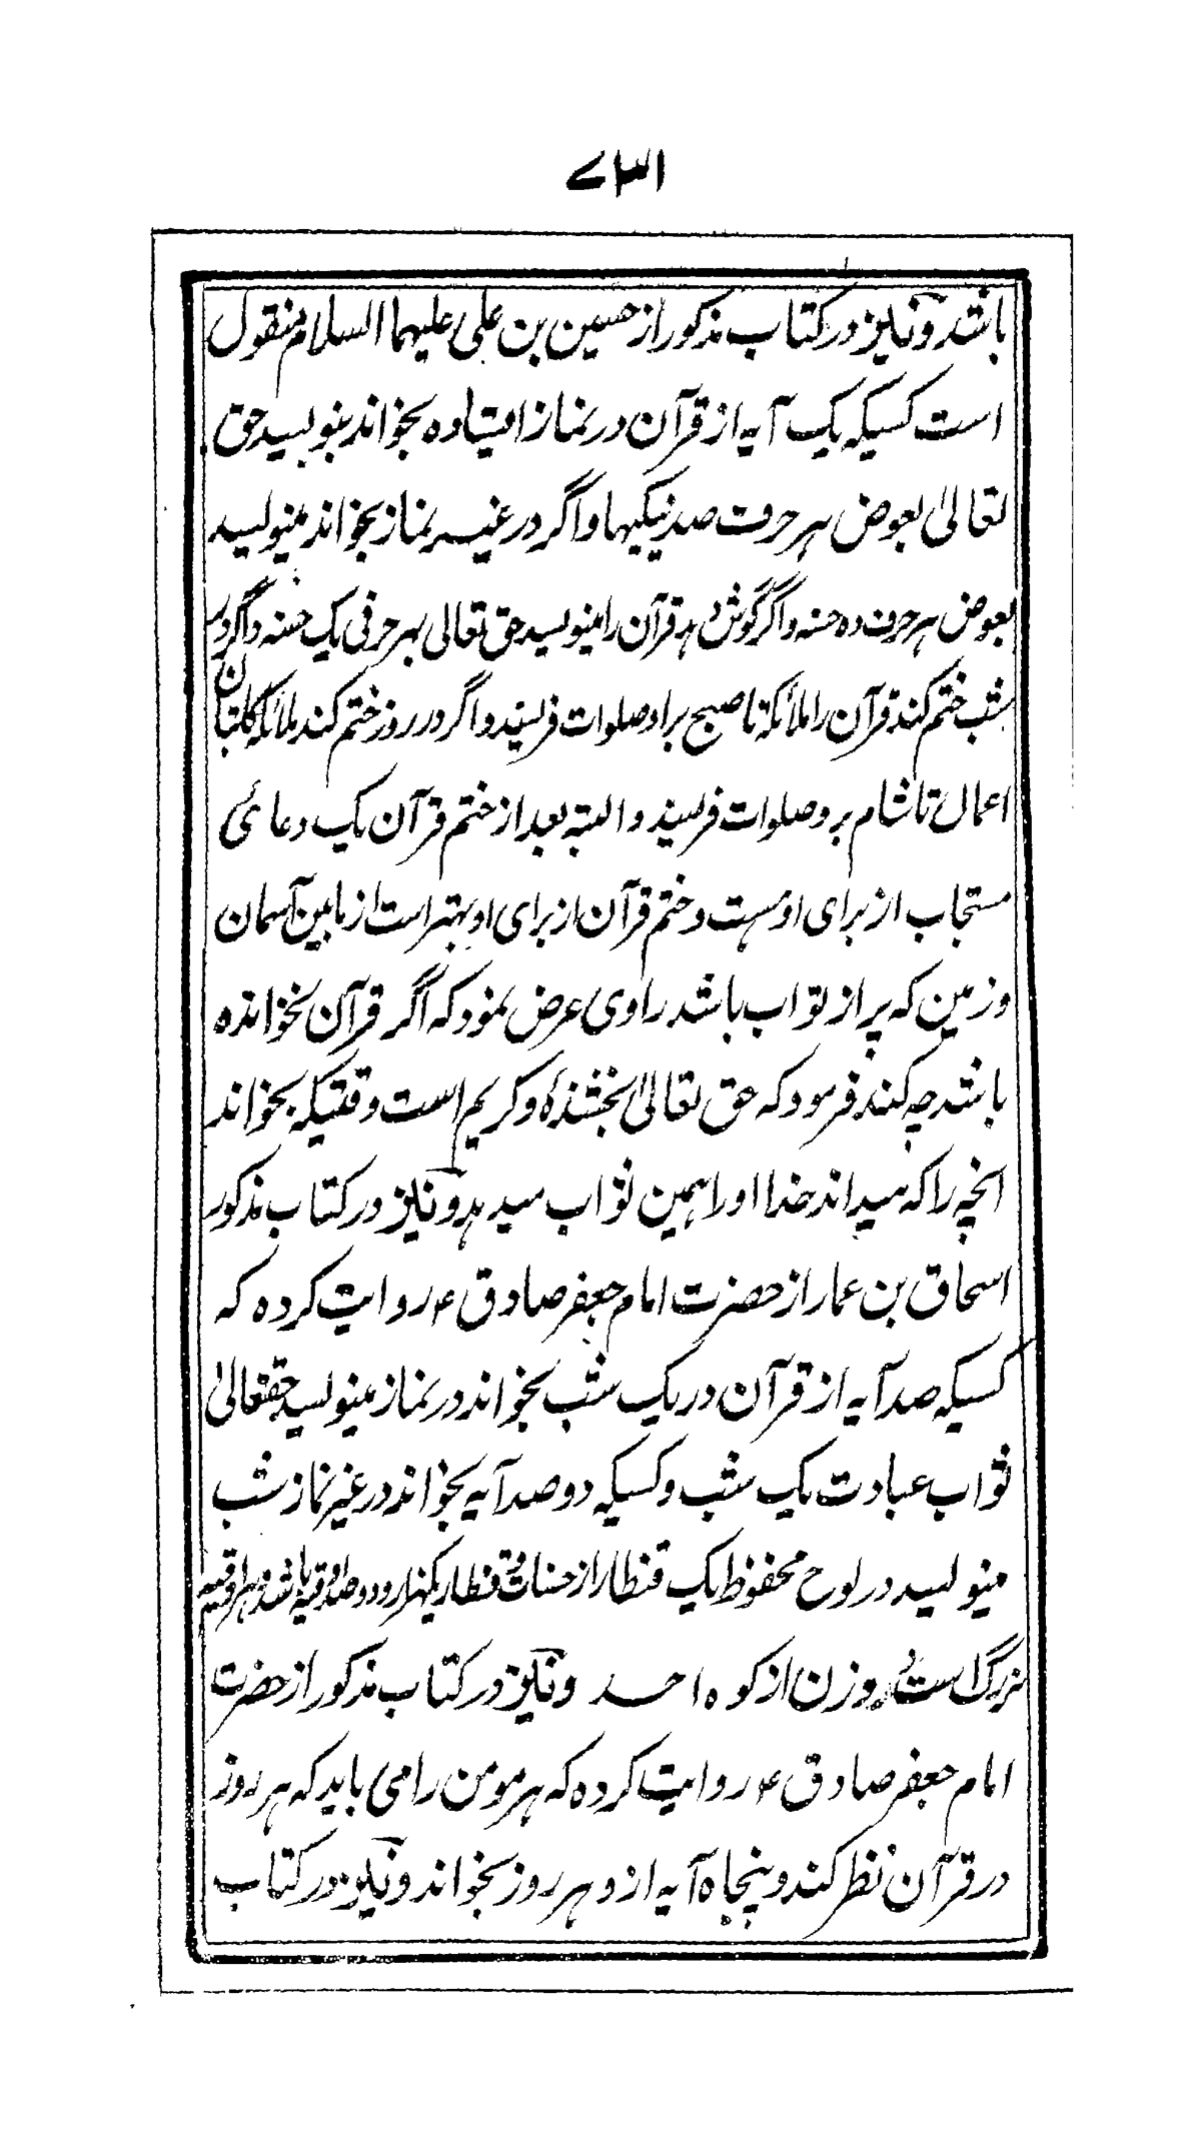 ۷۳۱
باشد و نیز در کتاب مذکور از حسین بن علی علیهما السلام منقول
است کسیکه یک آیه از قرآن در نماز ایستاده بخواند بنویسد حق
تعالیٰ بعوض هر حرف صد نیکیها و اگر در غیر نماز بخواند مینویسد
بعوض هر حرف ده حسنه و اگر گوش دهد قرآن را مینویسد حق تعالی بهر حرفی یک حسنه و اگر در
شب ختم کند قرآن را ملائکه تا صبح براو صلوات فرستند و اگر در روز ختم کند ملائکه کاتبان
اعمال تا شام برو صلوات فرستند و البته بعد از ختم قرآن یک دعائی
مستجاب از برای اوست و ختم قرآن از برای او بهتر است از مابین آسمان
و زمین که پر از ثواب باشد راوی عرض نمود که اگر قرآن نخوانده
باشد چه کند فرمود که حق تعالیٰ بخشنده و کریم است وقتیکه بخواند
آنچه را که میداند خدا او را همین ثواب میدهد و نیز در کتاب مذکور
اسحاق بن عمار از حضرت امام جعفر صادق ؑ روایت کرده که
کسیکه صد آیه از قرآن در یک شب بخواند در نماز مینویسد حقتعالیٰ
ثواب عبادت یک شب و کسیکه دو صد آیه بخواند در غیر نماز شب
مینویسد در لوح محفوظ یک قنطار از حسنات و قنطار یکهزار و دو صد اوقیه باشد و هر اوقیه
بزرگ است در وزن از کوه احد و نیز در کتاب مذکور از حضرت
امام جعفر صادق ؑ روایت کرده که هر مومن را می باید که هر روز
در قرآن نظر کند و پنجاه آیه از و هر روز بخواند و نیز در کتاب